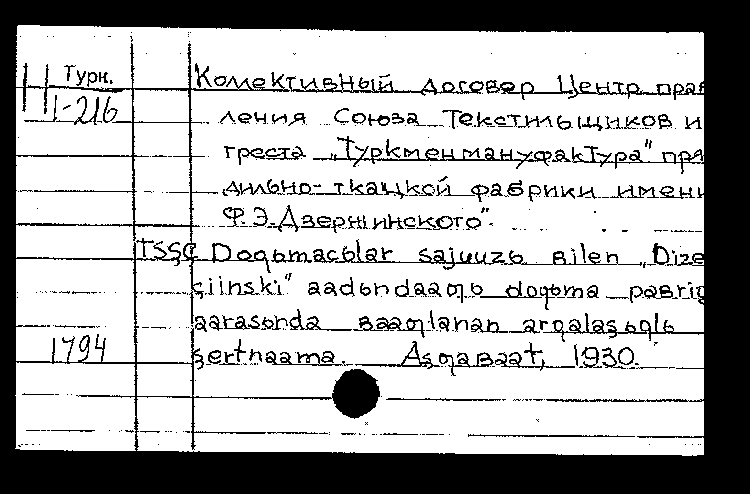 Турк.
Н 1-216
Колективный договор Центр прав
ления Союза Текстильщиков и
треста „Туркменмануфактура" пря
дильно-ткацкой фабрики имени
Ф.Э.Дзержинского".
TSŞÇ Doqьmacьlar sajuuzь Bilen „Dize
çiinski" aadьndaaƣь doqьma pabrig
aarasьnda Baaƣlanan arqalaşьqlь
1794 şertnaama. Aşƣaʙaat, 1930.